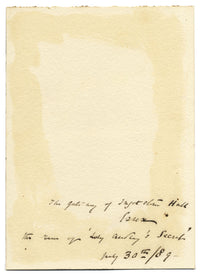 The gateway of Ingatestone Hall
Essex
the scene of "Lady Audley's Secret"
July 30th/89-